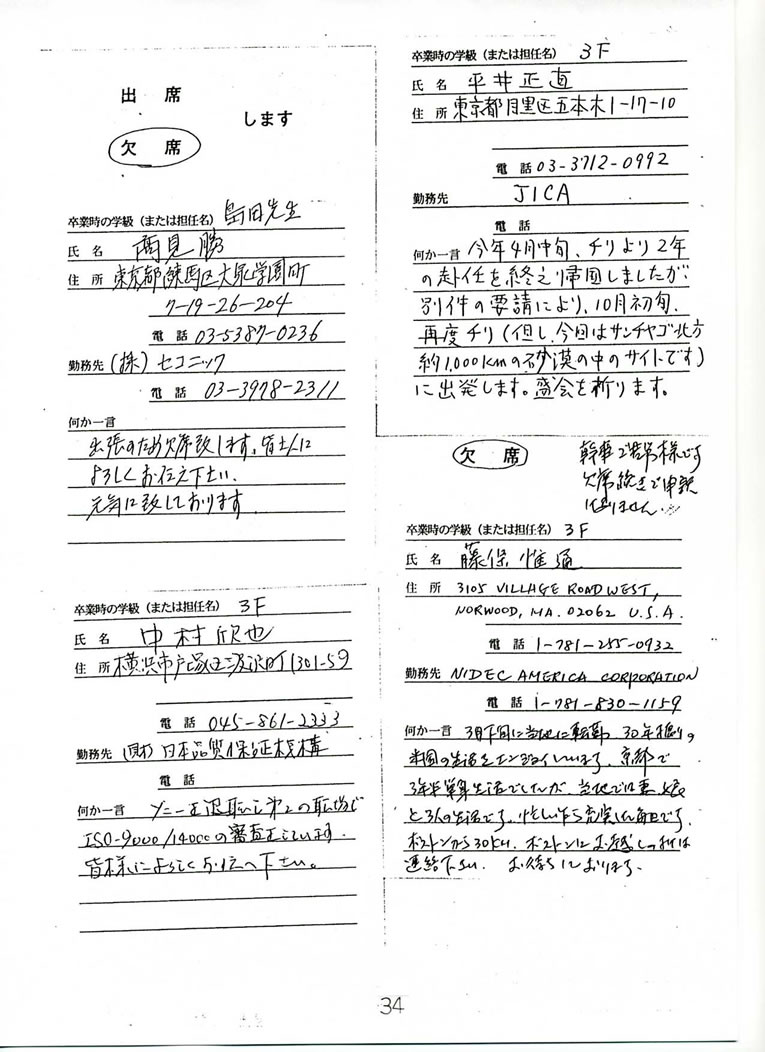 出 席
します
欠 席
卒業時の学級（または担任名） 島田先生
氏 名 西見 勝
住 所 東京都練馬区大泉学園町
7-19-26-204
電 話 03-5387-0236
勤務先 (株) セコニック
電 話 03-3978-2311
何か一言
出張のため欠席致します。皆さんに
よろしくお伝え下さい.
元気に致しております
卒業時の学級（または担任名） 3F
氏 名 中村欣也
住 所 横浜市戸塚区汲沢町1301-59
電 話 045-861-2333
勤務先 (財) 日本品質保証機構
電 話
何か一言 ソニーを退職し第2の職場で
ISO-9000/14000の審査をしています.
皆様によろしくお伝え下さい。
卒業時の学級（または担任名） 3F
氏 名 平井正直
住 所 東京都目黒区五本木1-17-10
電 話 03-3712-0992
勤務先 JICA
電 話
何か一言 今年4月中旬、チリより2年
の赴任を終えり帰国しましたが
別件の要請により、10月初旬、
再度チリ(但し、今回はサンチャゴ北方
約1,000kmの砂漠の中のサイトです)
に出発します。盛会を祈ります。
欠 席
幹事ご苦労様です
欠席続きで申訳
ありません
卒業時の学級（または担任名） 3F
氏 名 藤保 惟通
住 所 3105 VILLAGE ROAD WEST,
NORWOOD, MA. 02062 U.S.A.
電 話 1-781-255-0932
勤務先 NIDEC AMERICA CORPORATION
電 話 1-781-830-1159
何か一言 3月下旬に当地に転勤、30年振りの
米国の生活をエンジョイしています. 京都で
3年半単身生活でしたが、当地では妻、娘
と3人の生活です。忙しい乍ら充実した毎日です.
ボストンから30km. ボストンにお越しの折は
連絡下さい. お待ちしております.
34